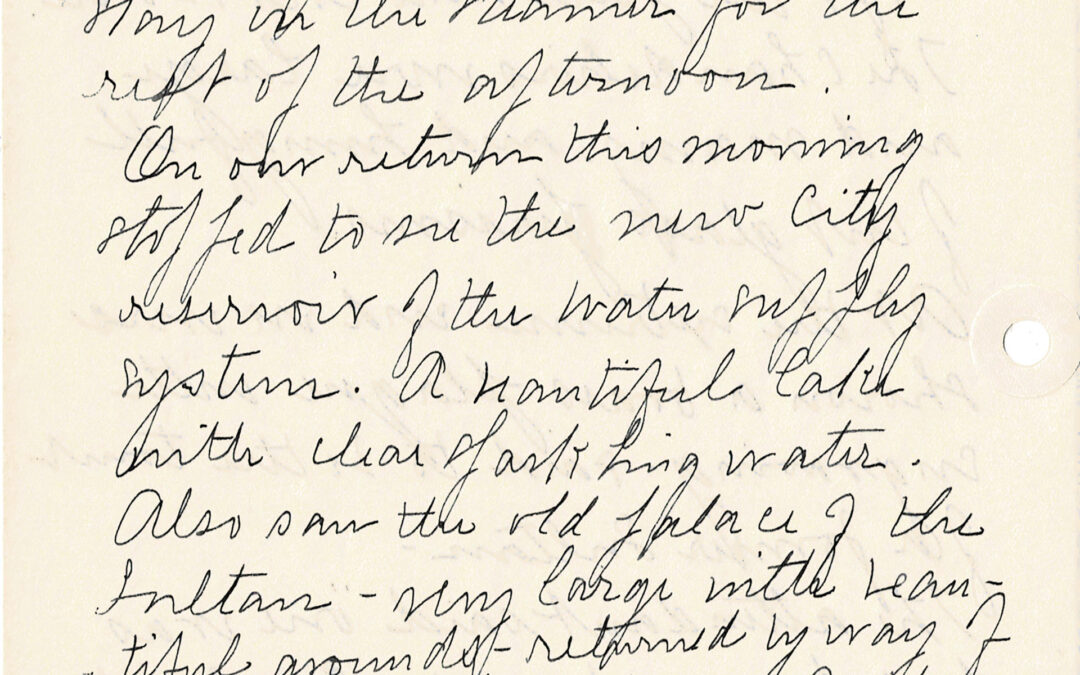 stay in the steamer for the
rest of the afternoon.
On our return this morning
stopped to see the new City
reservoir of the water supply
system. A beautiful lake
with clear sparkling water.
Also saw the old palace of the
Sultan - very large with beau-
tiful grounds - returned by way of